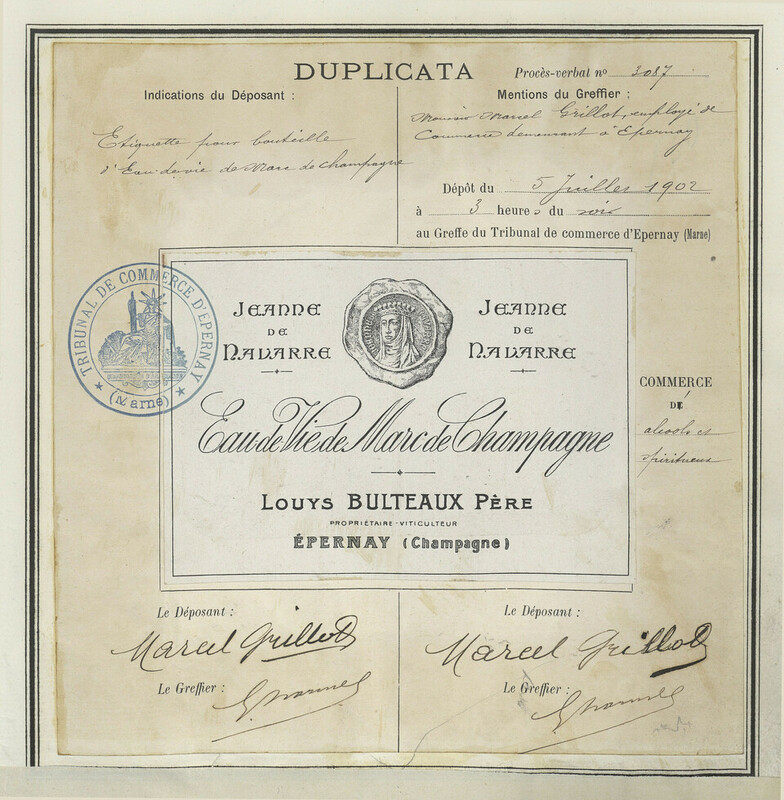 DUPLICATA
Procès-verbal nº 3087
Indications du Déposant :
Etiquette pour bouteille
d'Eau de vie de Marc de Champagne
Mentions du Greffier :
Monsieur Marcel Grillot, employé de
Commerce demeurant à Epernay
Dépôt du 5 Juillet 1902
à 3 heures du soir
au Greffe du Tribunal de commerce d'Epernay (Marne)
TRIBUNAL DE COMMERCE D'EPERNAY
(Marne)
JEANNE
DE
NAVARRE
JEANNE
DE
NAVARRE
Eau de Vie de Marc de Champagne
LOUYS BULTEAUX PÈRE
PROPRIÉTAIRE-VITICULTEUR
ÉPERNAY (Champagne)
COMMERCE
DE
alcools et
spiritueux
Le Déposant :
Marcel Grillot
Le Greffier :
Le Déposant :
Marcel Grillot
Le Greffier :